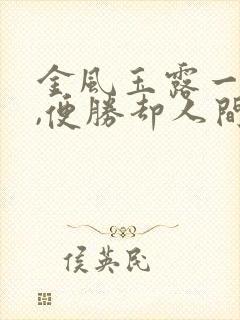 金風玉露一
,便勝却人間
侯英民